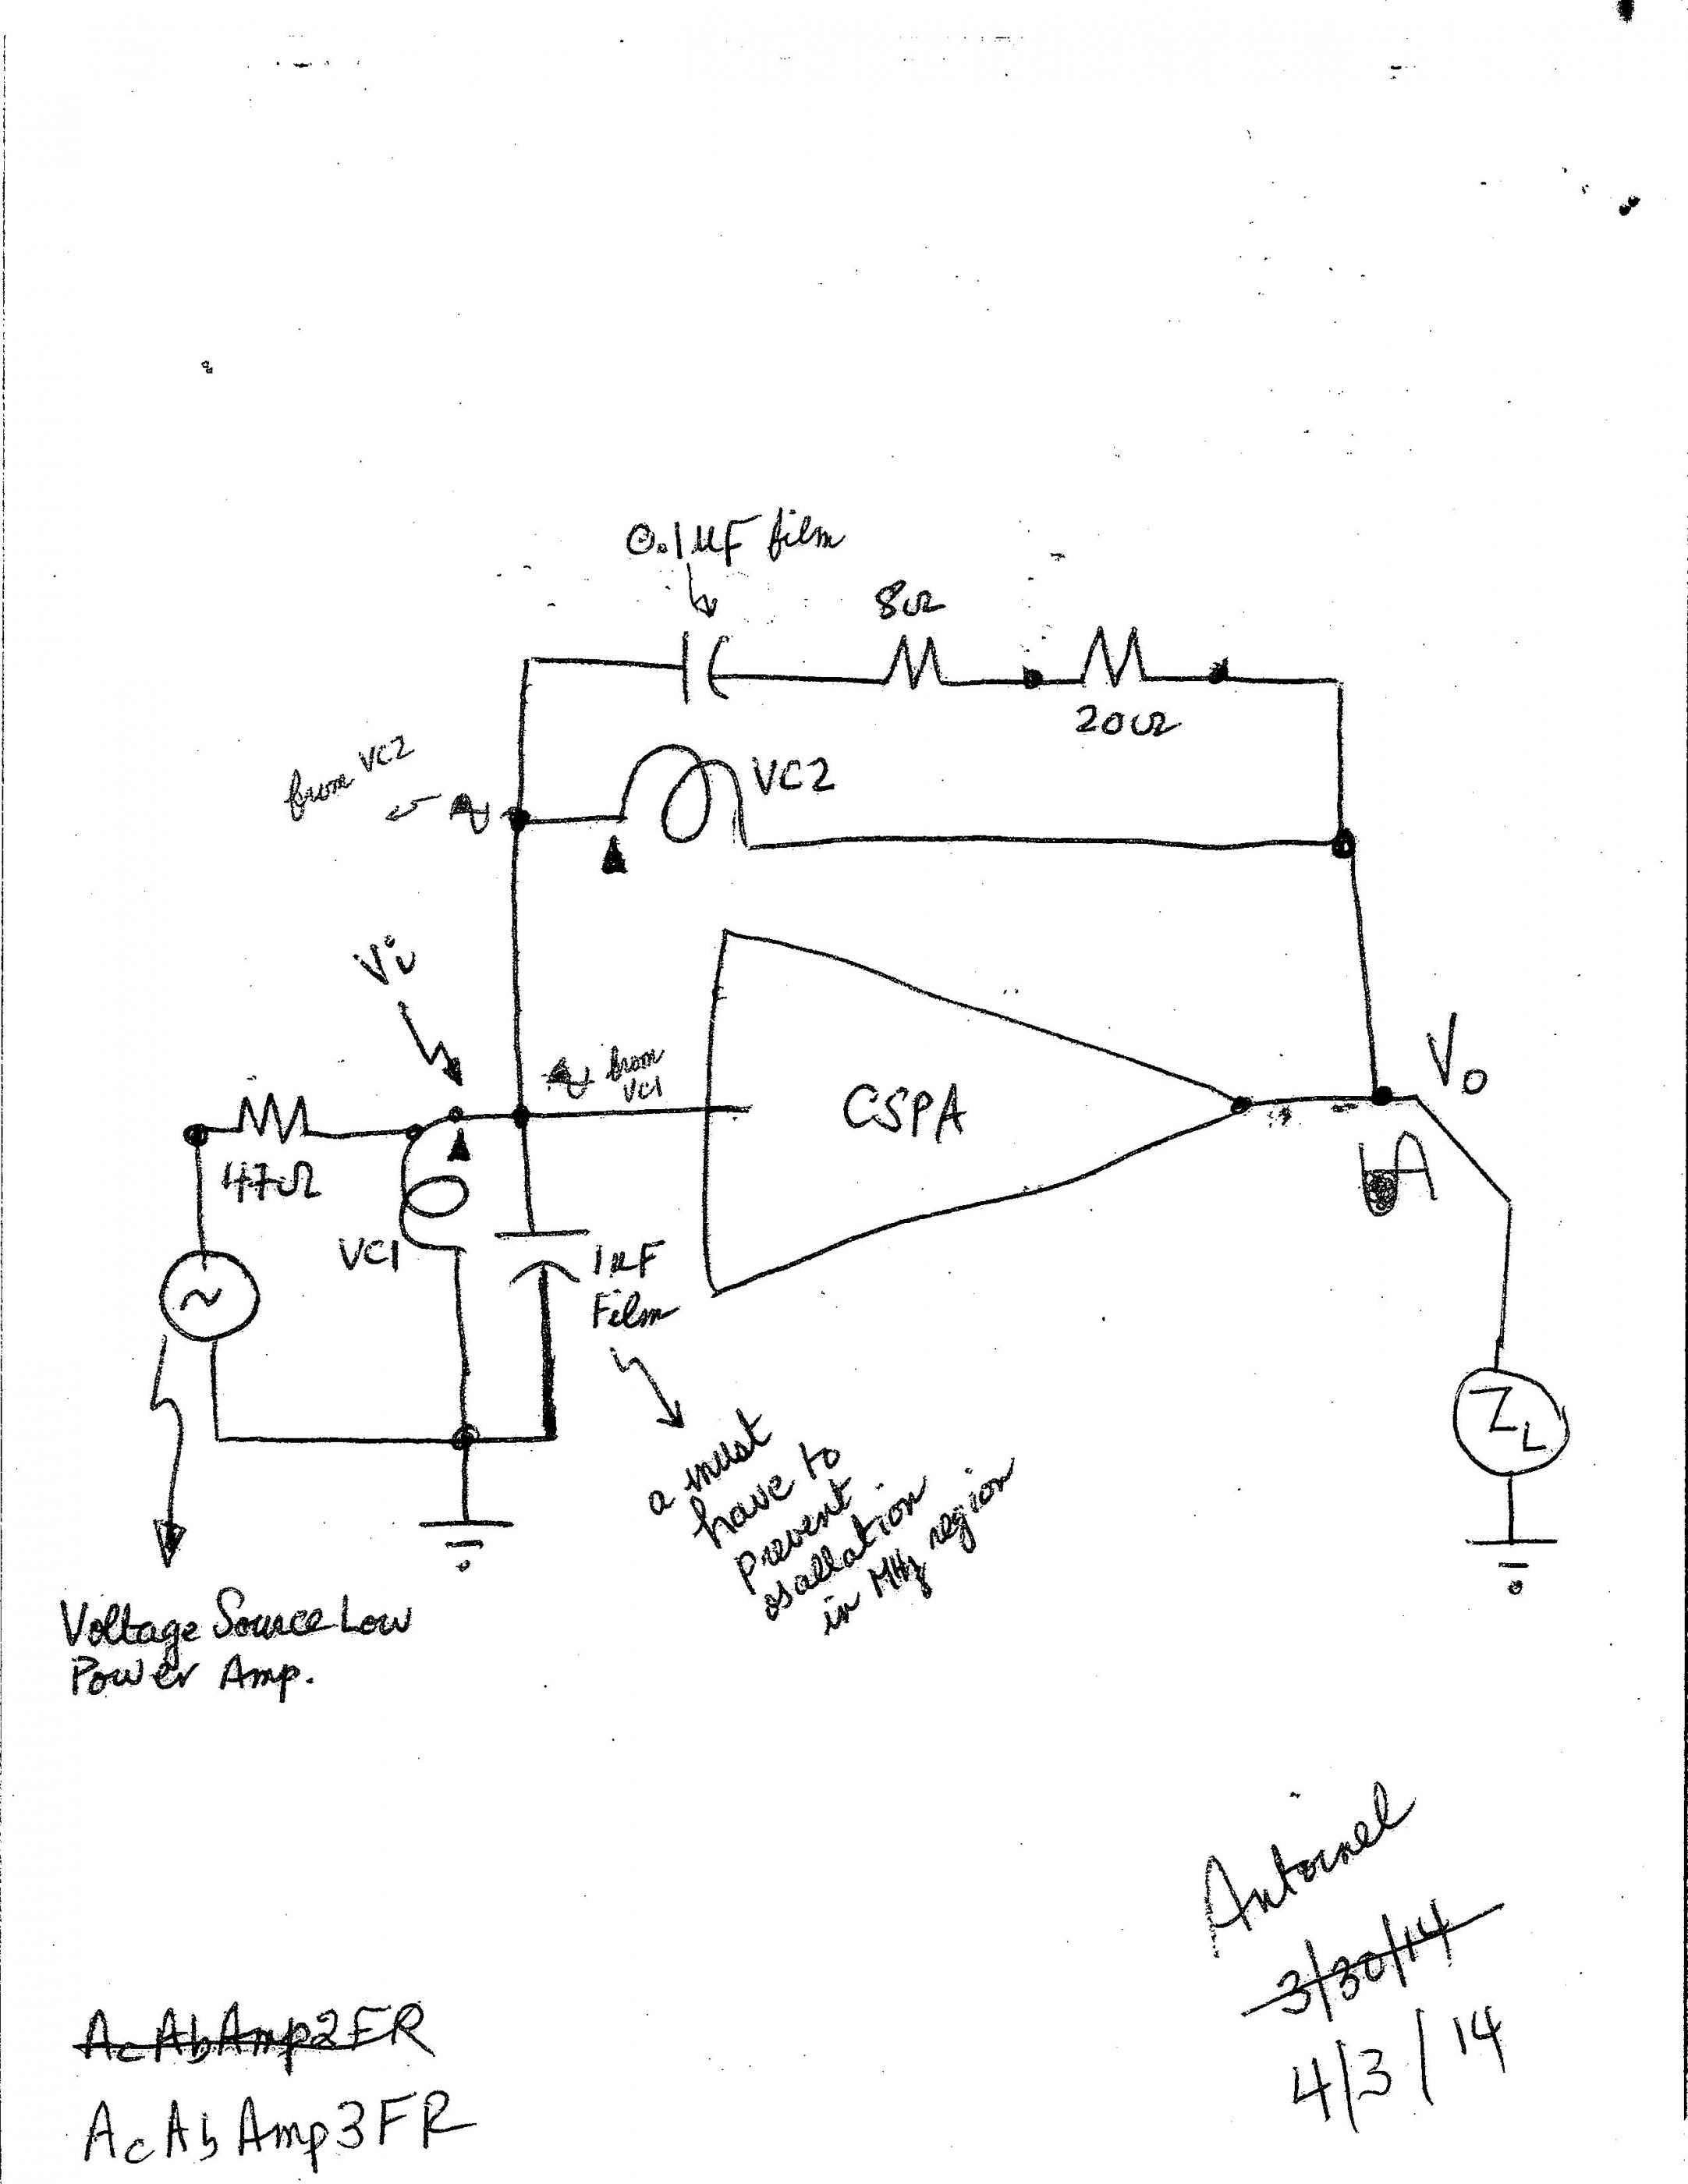 0.1uF film
8Ω
20Ω
from VC2
VC2
Vi
from
VC1
CSPA
Vo
47Ω
VC1
1uF
Film
ZL
a must
have to
prevent
osallation
in MHz region
Voltage Source Low
Power Amp.
Antoinel
3/30/14
4/3/14
AcAbAmp2FR
AcAbAmp3FR